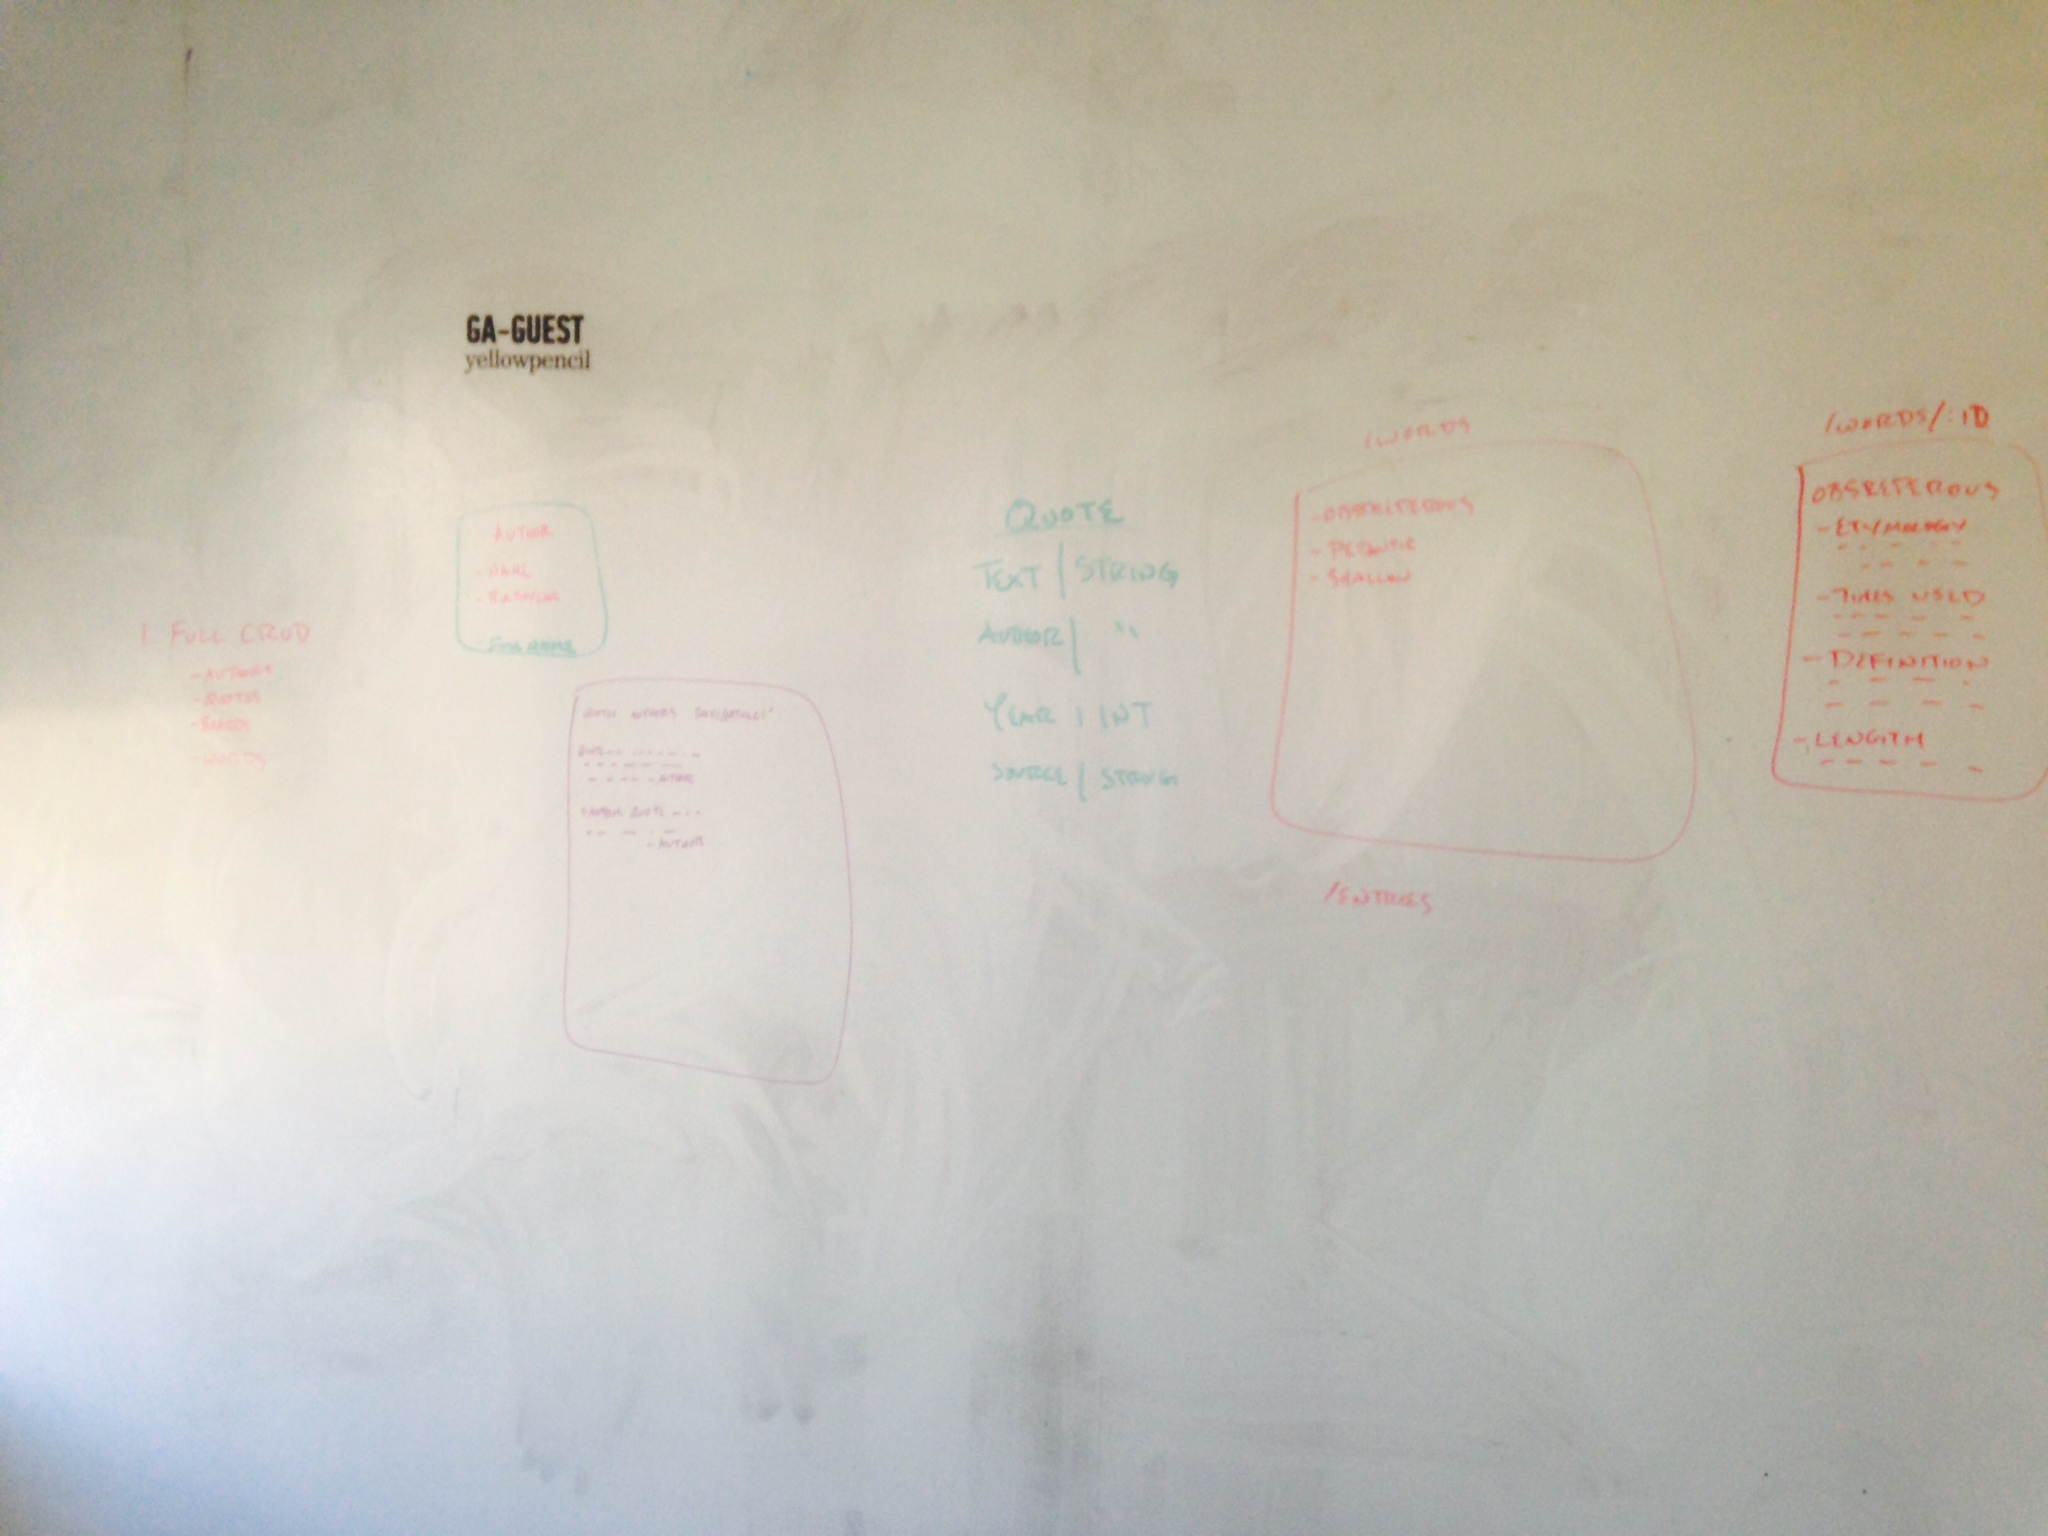 GA-GUEST
yellowpencil
1 FULL CRUD
- AUTHORS
- QUOTES
- WORDS
AUTHOR
- NAME
QUOTES AUTHORS
QUOTE
- AUTHOR
QUOTE
- AUTHOR
QUOTE
TEXT | STRING
AUTHOR | "
YEAR | INT
SOURCE | STRING
/WORDS
- OBSRETEROUS
- PEDANTIC
- SHALLOW
/ENTRIES
/WORDS/:ID
OBSRETEROUS
- ETYMOLOGY
- TIMES USED
- DEFINITION
- LENGTH